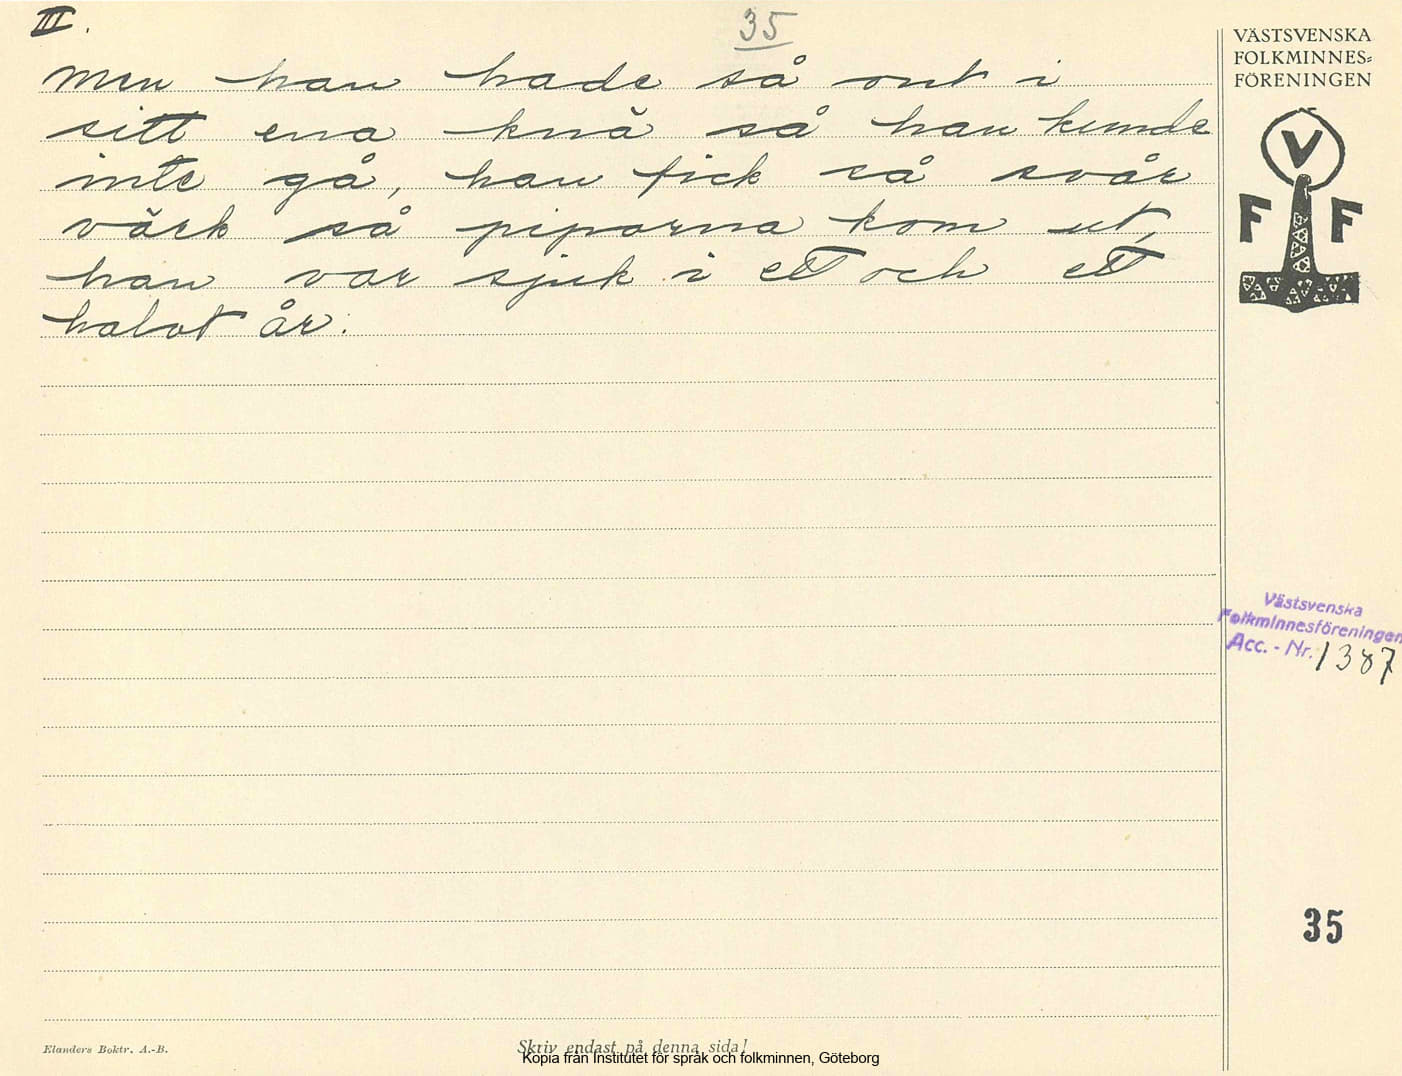 III.
35
men han hade så ont i
sitt ena knä så han kunde
inte gå, han fick så svår
värk så piporna kom ut,
han var sjuk i ett och ett
halvt år.
VÄSTSVENSKA
FOLKMINNES=
FÖRENINGEN
V
F F
Västsvenska
Folkminnesföreningen
Acc. - Nr. 1387
35
Elanders Boktr. A.-B.
Skriv endast på denna sida!
Kopia från Institutet för språk och folkminnen, Göteborg